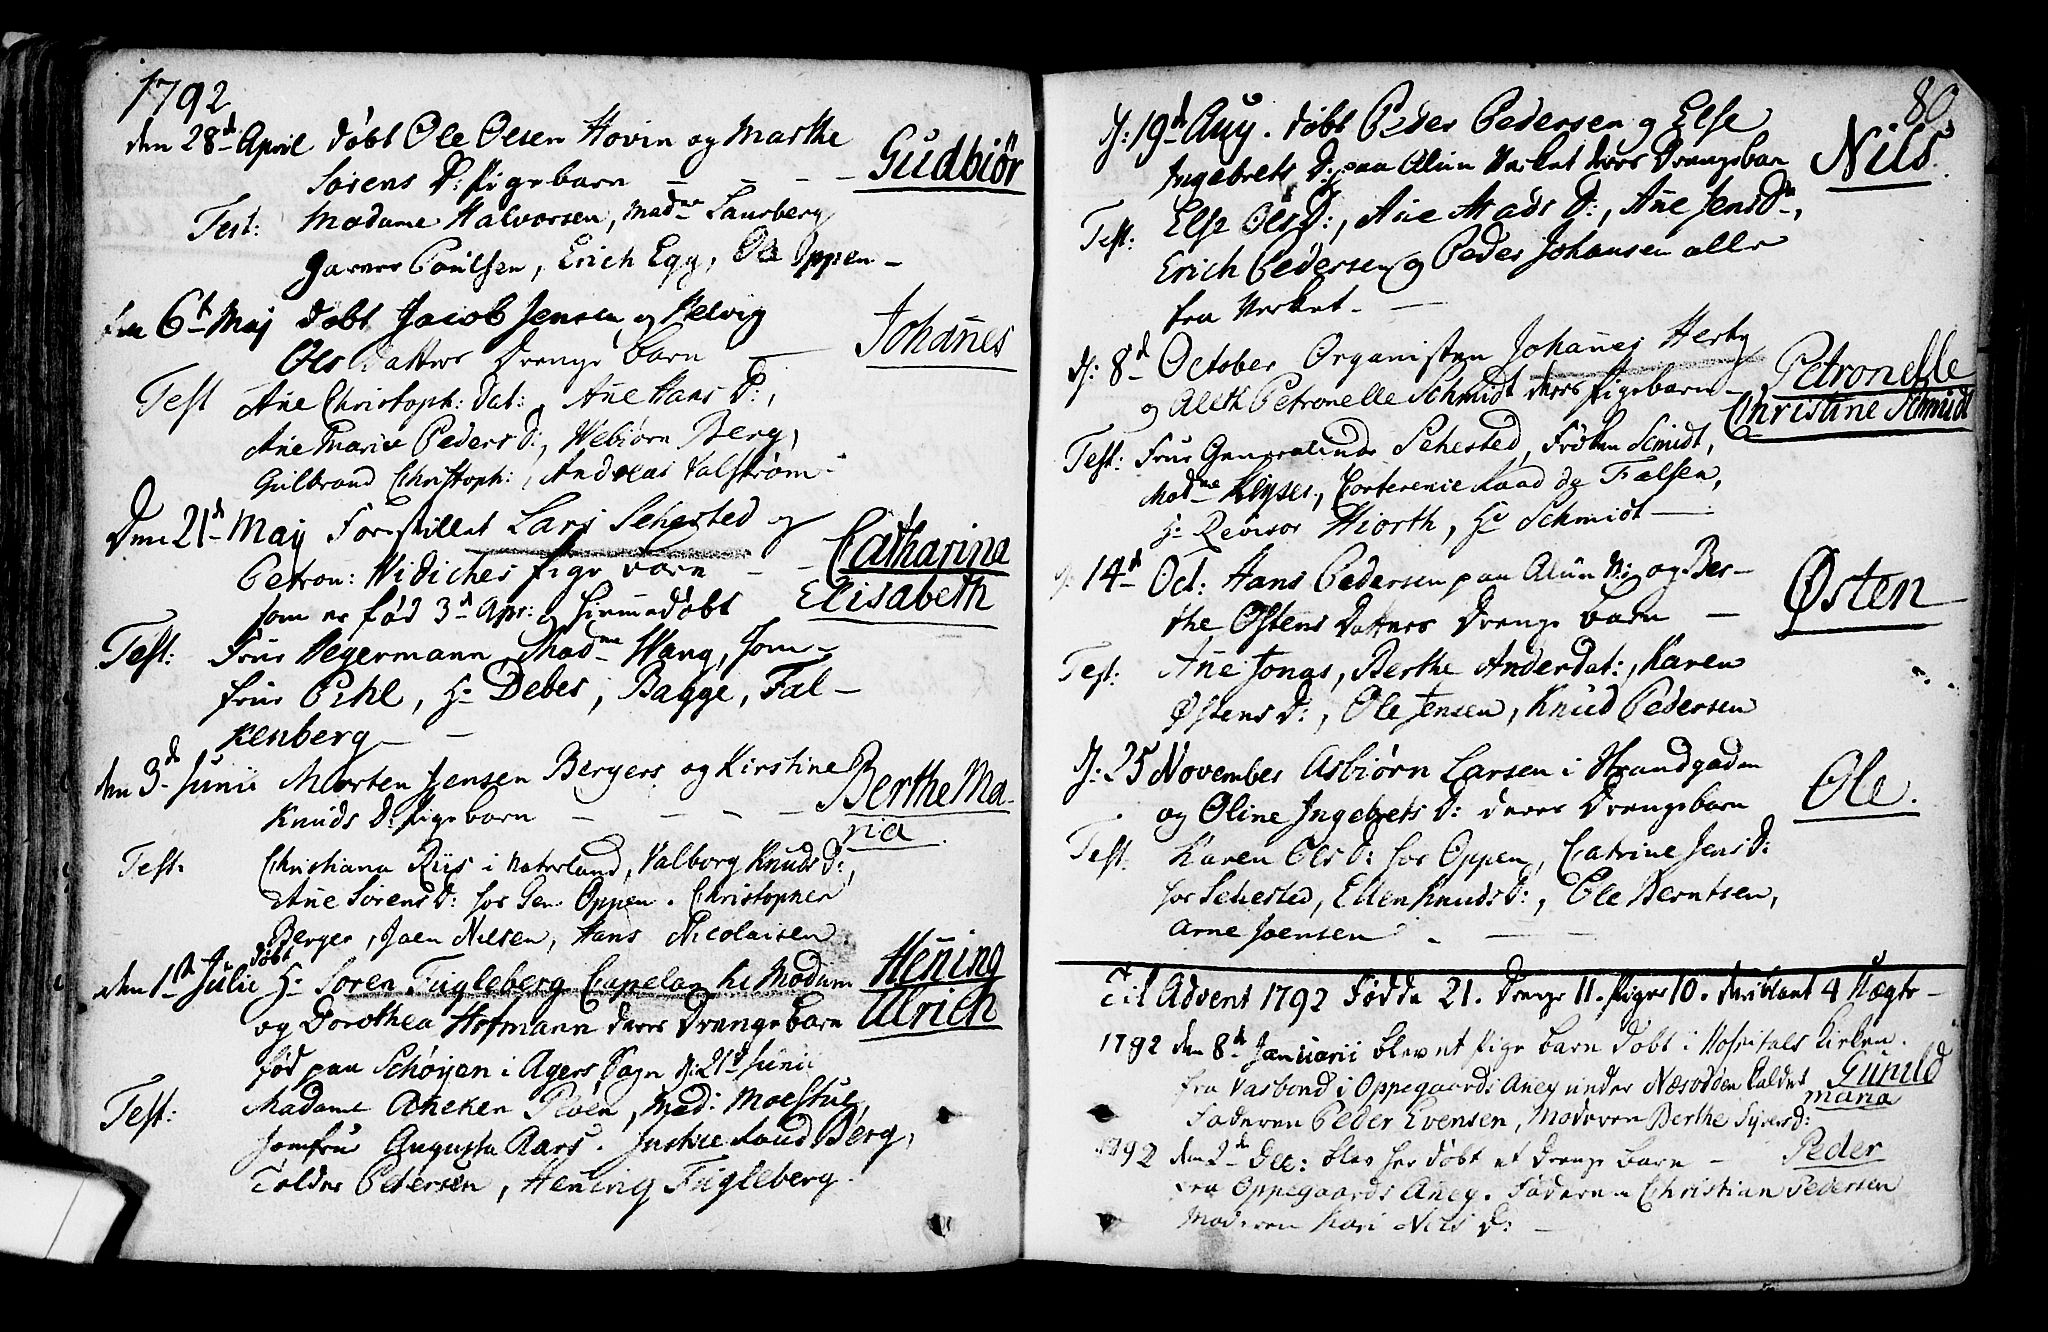 1792
den 28d April døbt Ole Olsen Hovin og Marthe
Sørens D: Pigebarn - - - - Gudbiør
Test: Madame Halvorsen, Madme Sandberg
Poulsen, Erich Egg, Ole Oppen -
den 6t Maj døbt Jacob Jensen og Helvig
Ols Datters Drenge barn - Johañes
Test Añe Christoph: Dat:, Añe Hans D:,
Ane Marie Peders D:, Webiørn Berg,
Gulbrand Christoph:, Andreas Valstrøm
Den 21d May Forestillet Lars Sehested og
Petron: Widiches Pige barn - - Catharina
som er fød 3d Apr: hiemedøbt Elisabeth
Test: Frue Wegermann, Madme Wang, Jom-
frue Pihl, Hr Debes, Bagge, Fal-
kenberg - -
den 3d Junii Morten Jensen Bergers og Kirstine
Knuds D: Pigebarn - - - - Berthe Ma-
ria
Test: Christiana Riis i Vaterland, Valborg Knuds D:,
Añe Sørens D: hos Gen. Oppen. Christopher
Berger, Joen Nilsen, Hans Nicolaisen
den 1d Julii døbt Hr Søren Fugleberg Capelan til Modum Hening
og Dorothea Hofmann deres Drenge barn Ulrich
fød paa Schøyen i Agers Sogn d: 21d Junii
Test: Madame Aneken Ploen, Mad: Moestue,
Jomfrue Augusta Aars. Justice Raad Berg,
Tolder Petersen, Hening Fugleberg.
80
d: 19d Aug. døbt Peder Pedersen og Else
Ingebrets D: paa Alun Verket deres Drengebarn Nils.
Test: Else Ols D:, Añe Mads D:, Añe Jens Dr,
Erich Pedersen og Peder Johansen alle
fra Verket. -
d: 8d October Organisten Johañes Herby
og Aleth Petronelle Schmidt deres Pigebarn - Petronelle
Christine Schmidt
Test: Frue Generalinde Sehested, Frøken Scmidt,
Madme Keyser, Conference Raad de Falsen,
Hr Revisor Hiorth, Hr Schmidt -
d: 14d Oct: Hans Pedersen paa Alun V: og Ber-
the Østens Datters Drenge barn - Østen
Test: Añe Jonas, Berthe Anderdat:, Karen
Østens D:, Ole Jensen, Knud Pedersen
d: 25 November Asbiørn Larsen i Strandgaden
og Oline Ingebrets D: deres Drengebarn Ole.
Test: Karen Ols D: hos Oppen, Catrine Jens D:
hos Sehested, Ellen Knuds D:, Ole Berntsen,
Arne Joensen - -
Til Advent 1792 Fødde 21. Drenge 11. Piger 10. deriblant 4 Uægte -
1792 den 8d Januarii blev et Pige barn døbt i Hospitals Kirken.
fra Vasbond i Oppegaards Anex under Næsodden kaldet Gunild
Maria
Faderen Peder Evensen, Moderen Berthe Sivers D:
1792 den 2d Dec: blev her døbt et Drenge barn - Peder
fra Oppegaards Anex. Faderen Christian Pedersen
Moderen Kari Nils D: -